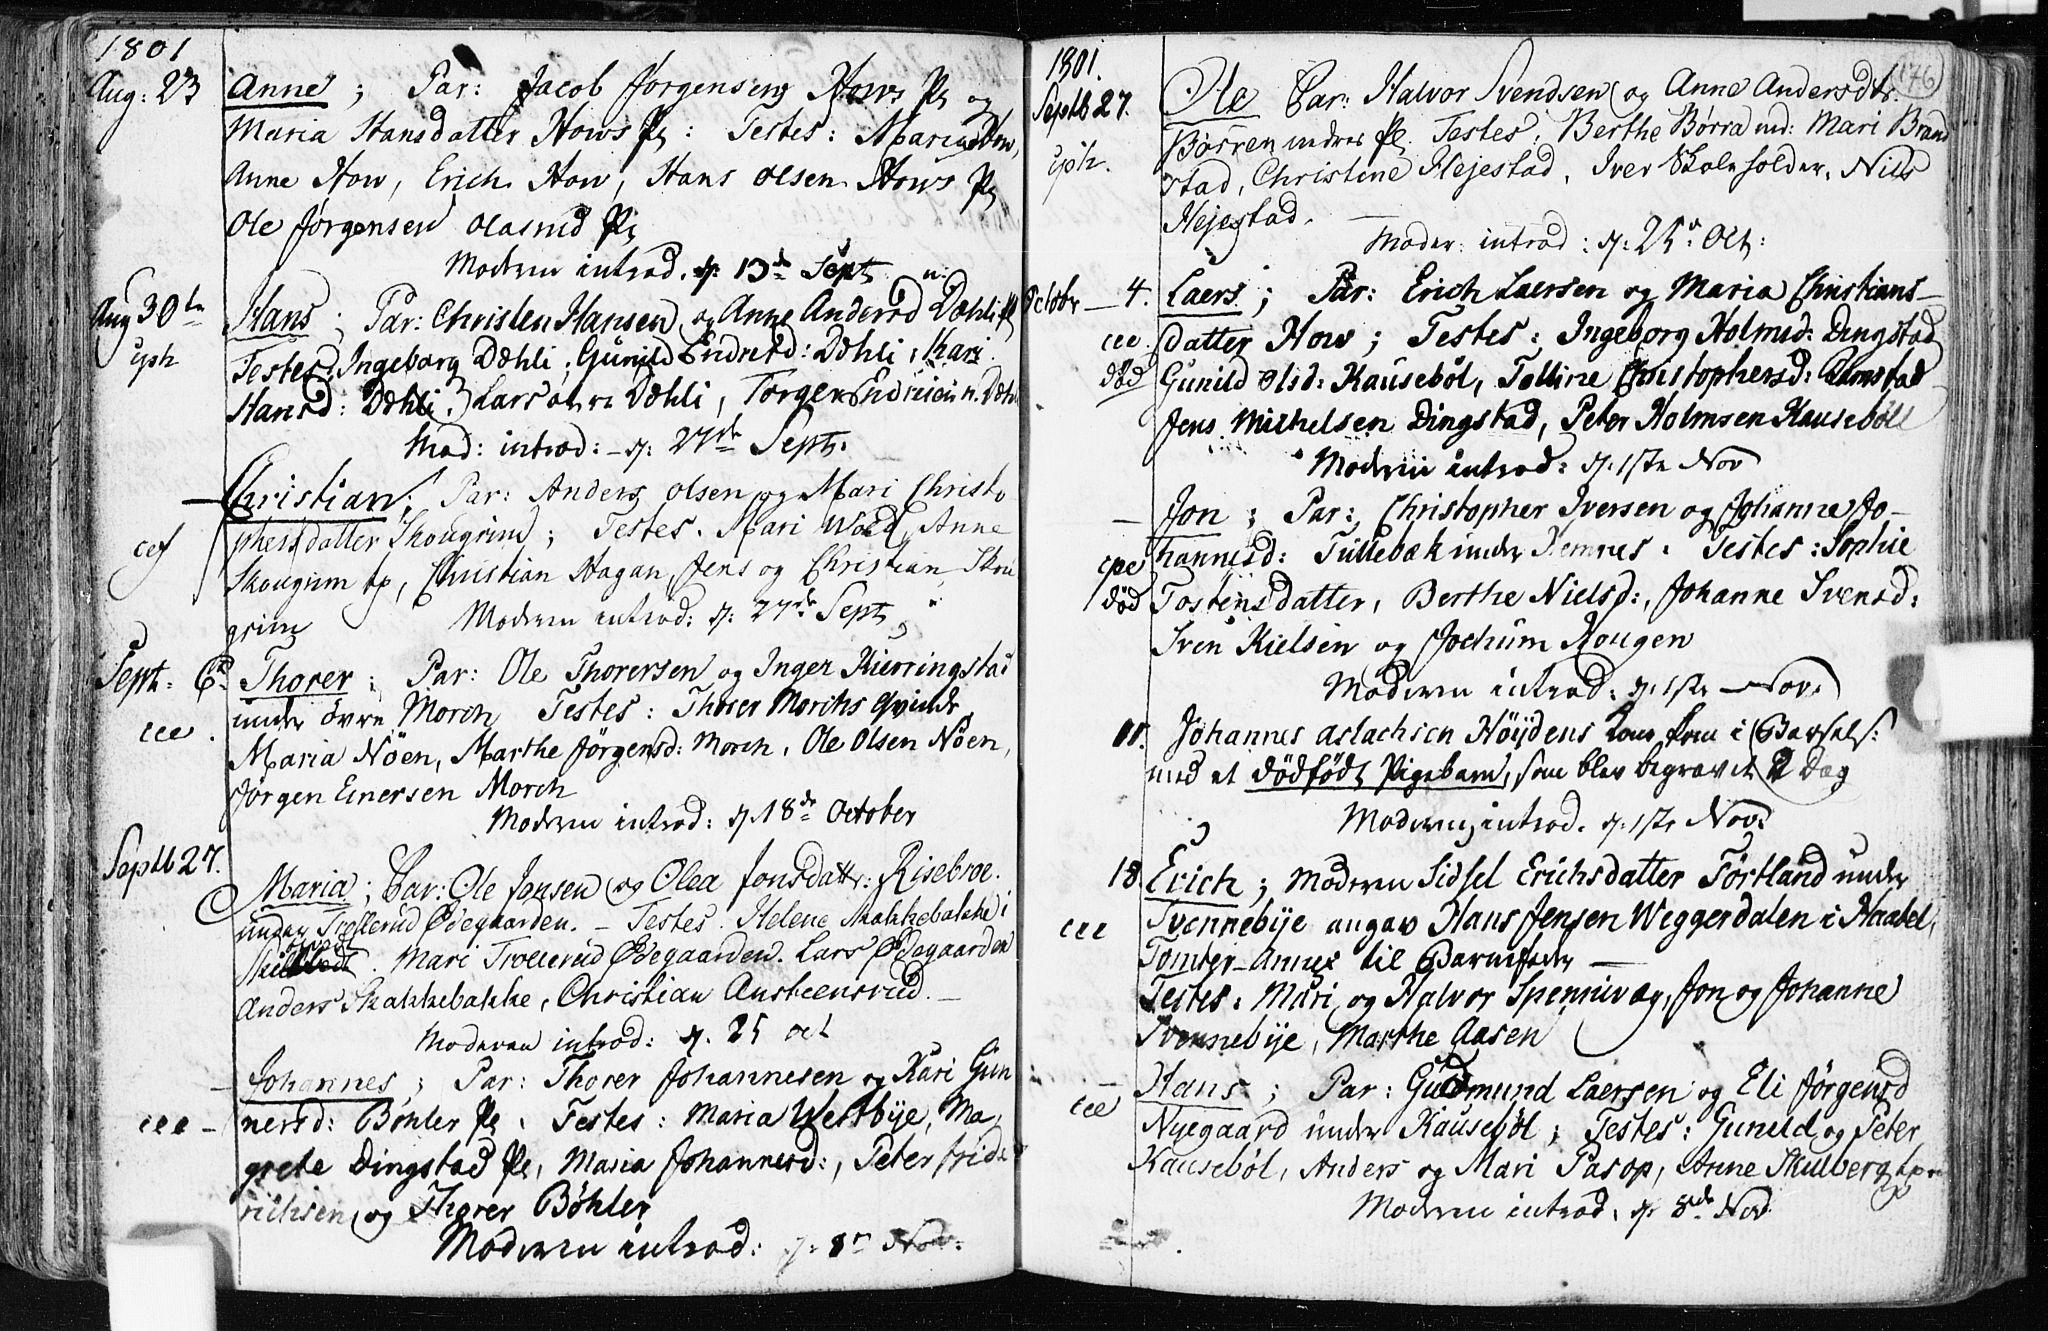 1801
Aug: 23 Anne; Par: Jacob Jörgensen Hows Pl og
Maria Hansdatter Hows Pl: Testes: Maria How,
Anne How, Erich How, Hans Olsen Hows Pl
Ole Jörgensen Olasrud Pl
Moderen introd. d: 13de Sept
Aug 30te Hans; Par: Christen Hansen og Anne Andersd Dæhli Pl
Testes: Ingeborg Dæhli, Gunild Endresd: Dæhli, Kari
Hansd: Dæhli, Lars Dæhli, Torger Dæhl
Mod: introd: d: 27de Sept.
Christian; Par: Anders Olsen og Mari Christo
phersdatter Skougrim; Testes. Mari Anne
Skougrim Christian Hagan, Jens og Christian Skou
grim Moderen introd: d: 27de Sept
Sept. 6te Thorer; Par: Ole Thorersen og Inger Kierringstad
under övre Morch Testes: Thorer Morchs Qvinde
cee. Maria Nöen, Marthe Jörgensd: Morch, Ole Olsen Nöen,
Jörgen Einersen Morch
Moderen introd: d. 18de October
Septb 27. Maria; Par: Ole Jensen og Olea Jonsdattr: Risebroe
under Trollerud Ødegaarden. – Testes. Helene Skakkebakke i
Mari Trollerud Ødegaarden. Lars Ødegaarden
Anders Skakkebakke, Christian Austeensrud. –
Moderen introd: d. 25 Oct
– Johannes; Par: Thorer Johannesen og Kari Gun
cee – nersd: Böhler Pl. Testes: Maria Westbye, Ma
grete Dingstad Pl, Maria Johannesd:, Peter Frid
richsen og Thorer Böhler
Moderen introd: d: Nov.
1801. 176
Septb 27. Ole Par: Halvor Svendsen og Anne Andersdtr.
Børren under Pl. Testes. Berthe Børra Mari Brand
stad, Christine Hejestad, Iver Skoleholder, Nils
Hejestad.
Moder: introd: d: 25de Oct:
Octobr – 4. Laers; Par: Erich Laersen og Maria Christians–
cee. datter How; Testes: Ingeborg Holmsd: Dingstad
död Gunild Olsd: Kauseböl, Tolline Christophersd: Ramstad
Jens Michelsen Dingstad, Peter Holmsen Kauseböll
Moderen introd: d. 1ste Nov
– Jon; Par: Christopher Iversen og Johanne Jo–
hannesd: Tüllebæk under Hemnes. Testes: Sophie
död Tostensdatter, Berthe Nielsd:, Johanne Svensd:
Sven Kielsen og Jochum Kougen
Moderen introd: d. 1ste Nov.
11. Johannes Aslachsen Höydens Kone kom i Barsels:
med et dödfödt Pigebarn, som blev begravet D Dag
Moderen introd. d. 1ste Nov:
18 Erich; Moderen Sidsel Erichsdatter Förtland under
cee Svennebye angav Hans Jensen Weggerdalen i Haabel,
Tomter Annex til Barnefader –
Testes: Mari og Halvor Spennivag, Jon og Johanne
Svennebye, Marthe Aasen
– Hans; Par: Gudmund Laersen og Eli Jörgensd
cee Nyegaard under Kauseböl; Testes: Gunild og Peter
Kauseböl, Anders og Mari Pasop, Anne Skulberg
Moderen introd. d. 8de Nov.